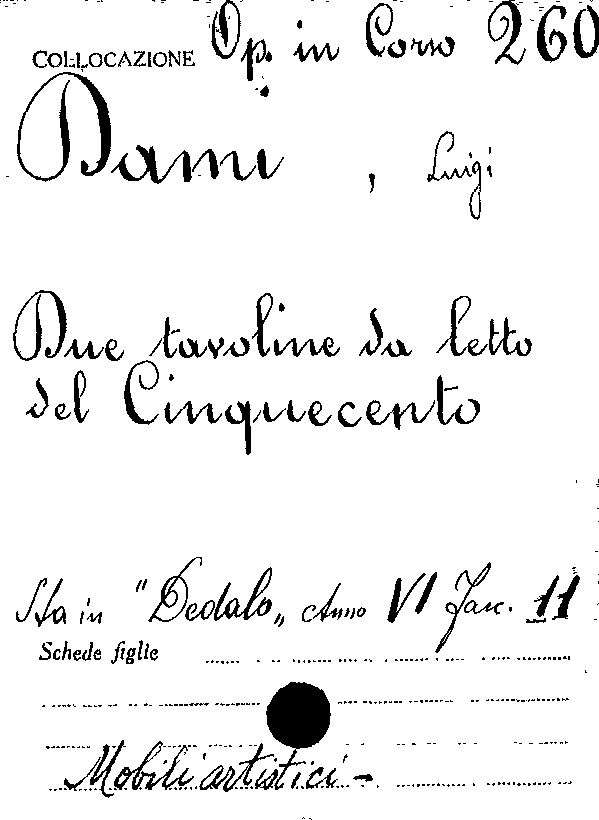 COLLOCAZIONE Op. in Corso 260
Dami, Luigi
Due tavoline da letto
del Cinquecento
Sta in "Dedalo„ Anno VI Fasc. 11
Schede figlie
Mobili artistici -